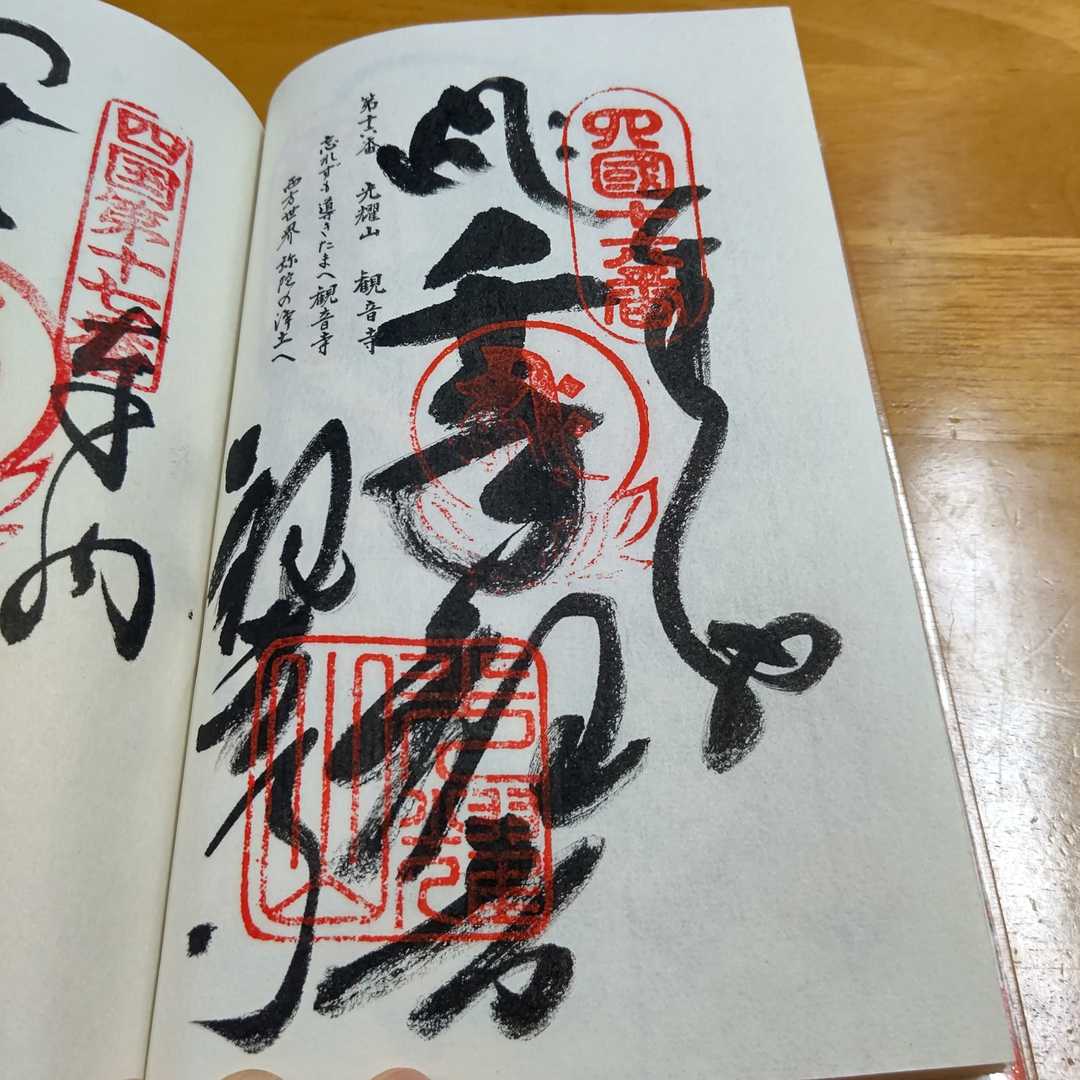 四國十六番
千手観音
第十六番 光耀山 観音寺
忘れずも導きたまへ観音寺
西方世界 弥陀の浄土へ
観音寺
四国第十七番
奉納